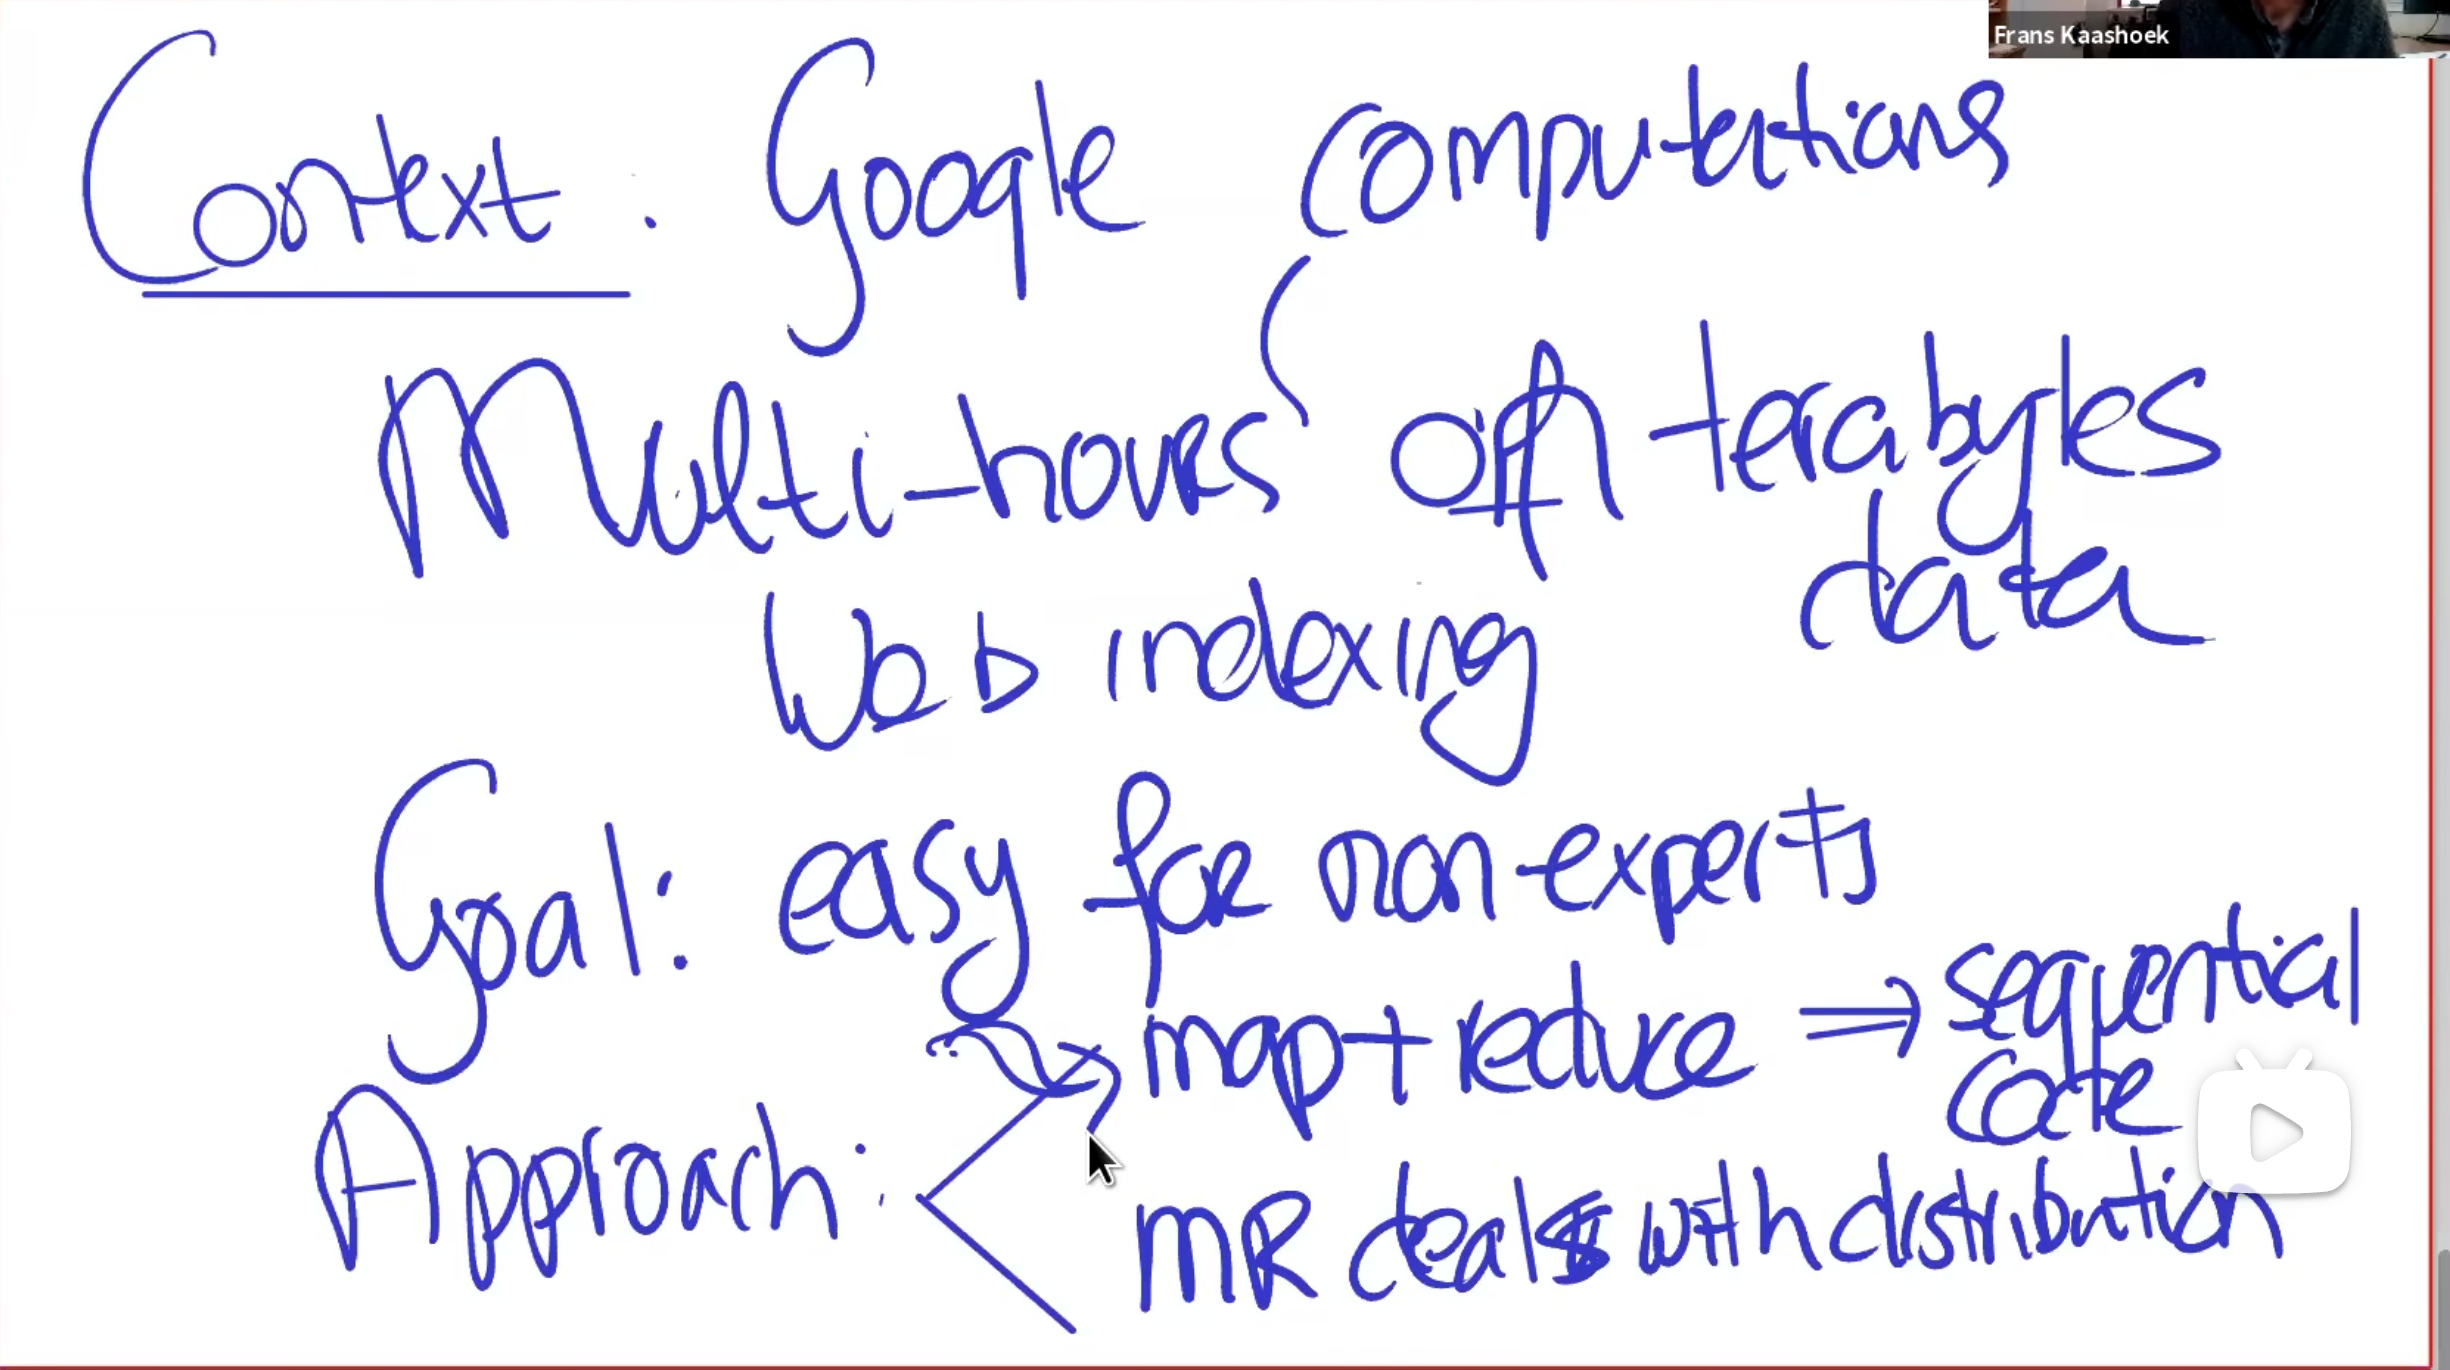 Frans Kaashoek
Context: Google computations
Multi-hours on terabytes
data
Web indexing
Goal: easy for non-experts
Approach: map + reduce ⇒ sequential
code
MR deals with distribution